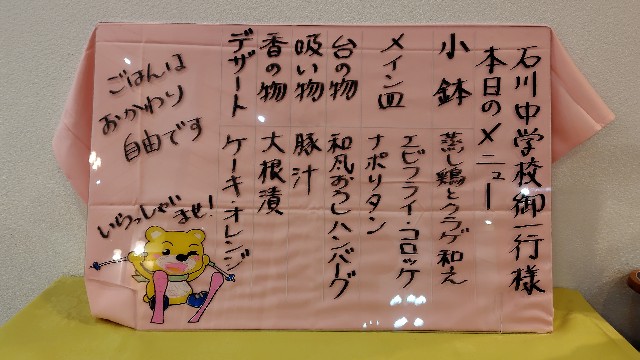 石川中学校御一行様
本日のメニュー
小鉢 蒸し鶏とクラゲ和え
メイン皿 エビフライ・コロッケ
ナポリタン
台の物 和風おろしハンバーグ
吸い物 豚汁
香の物 大根漬
デザート ケーキ・オレンジ
ごはんは
おかわり
自由です
いらっしゃいませ!